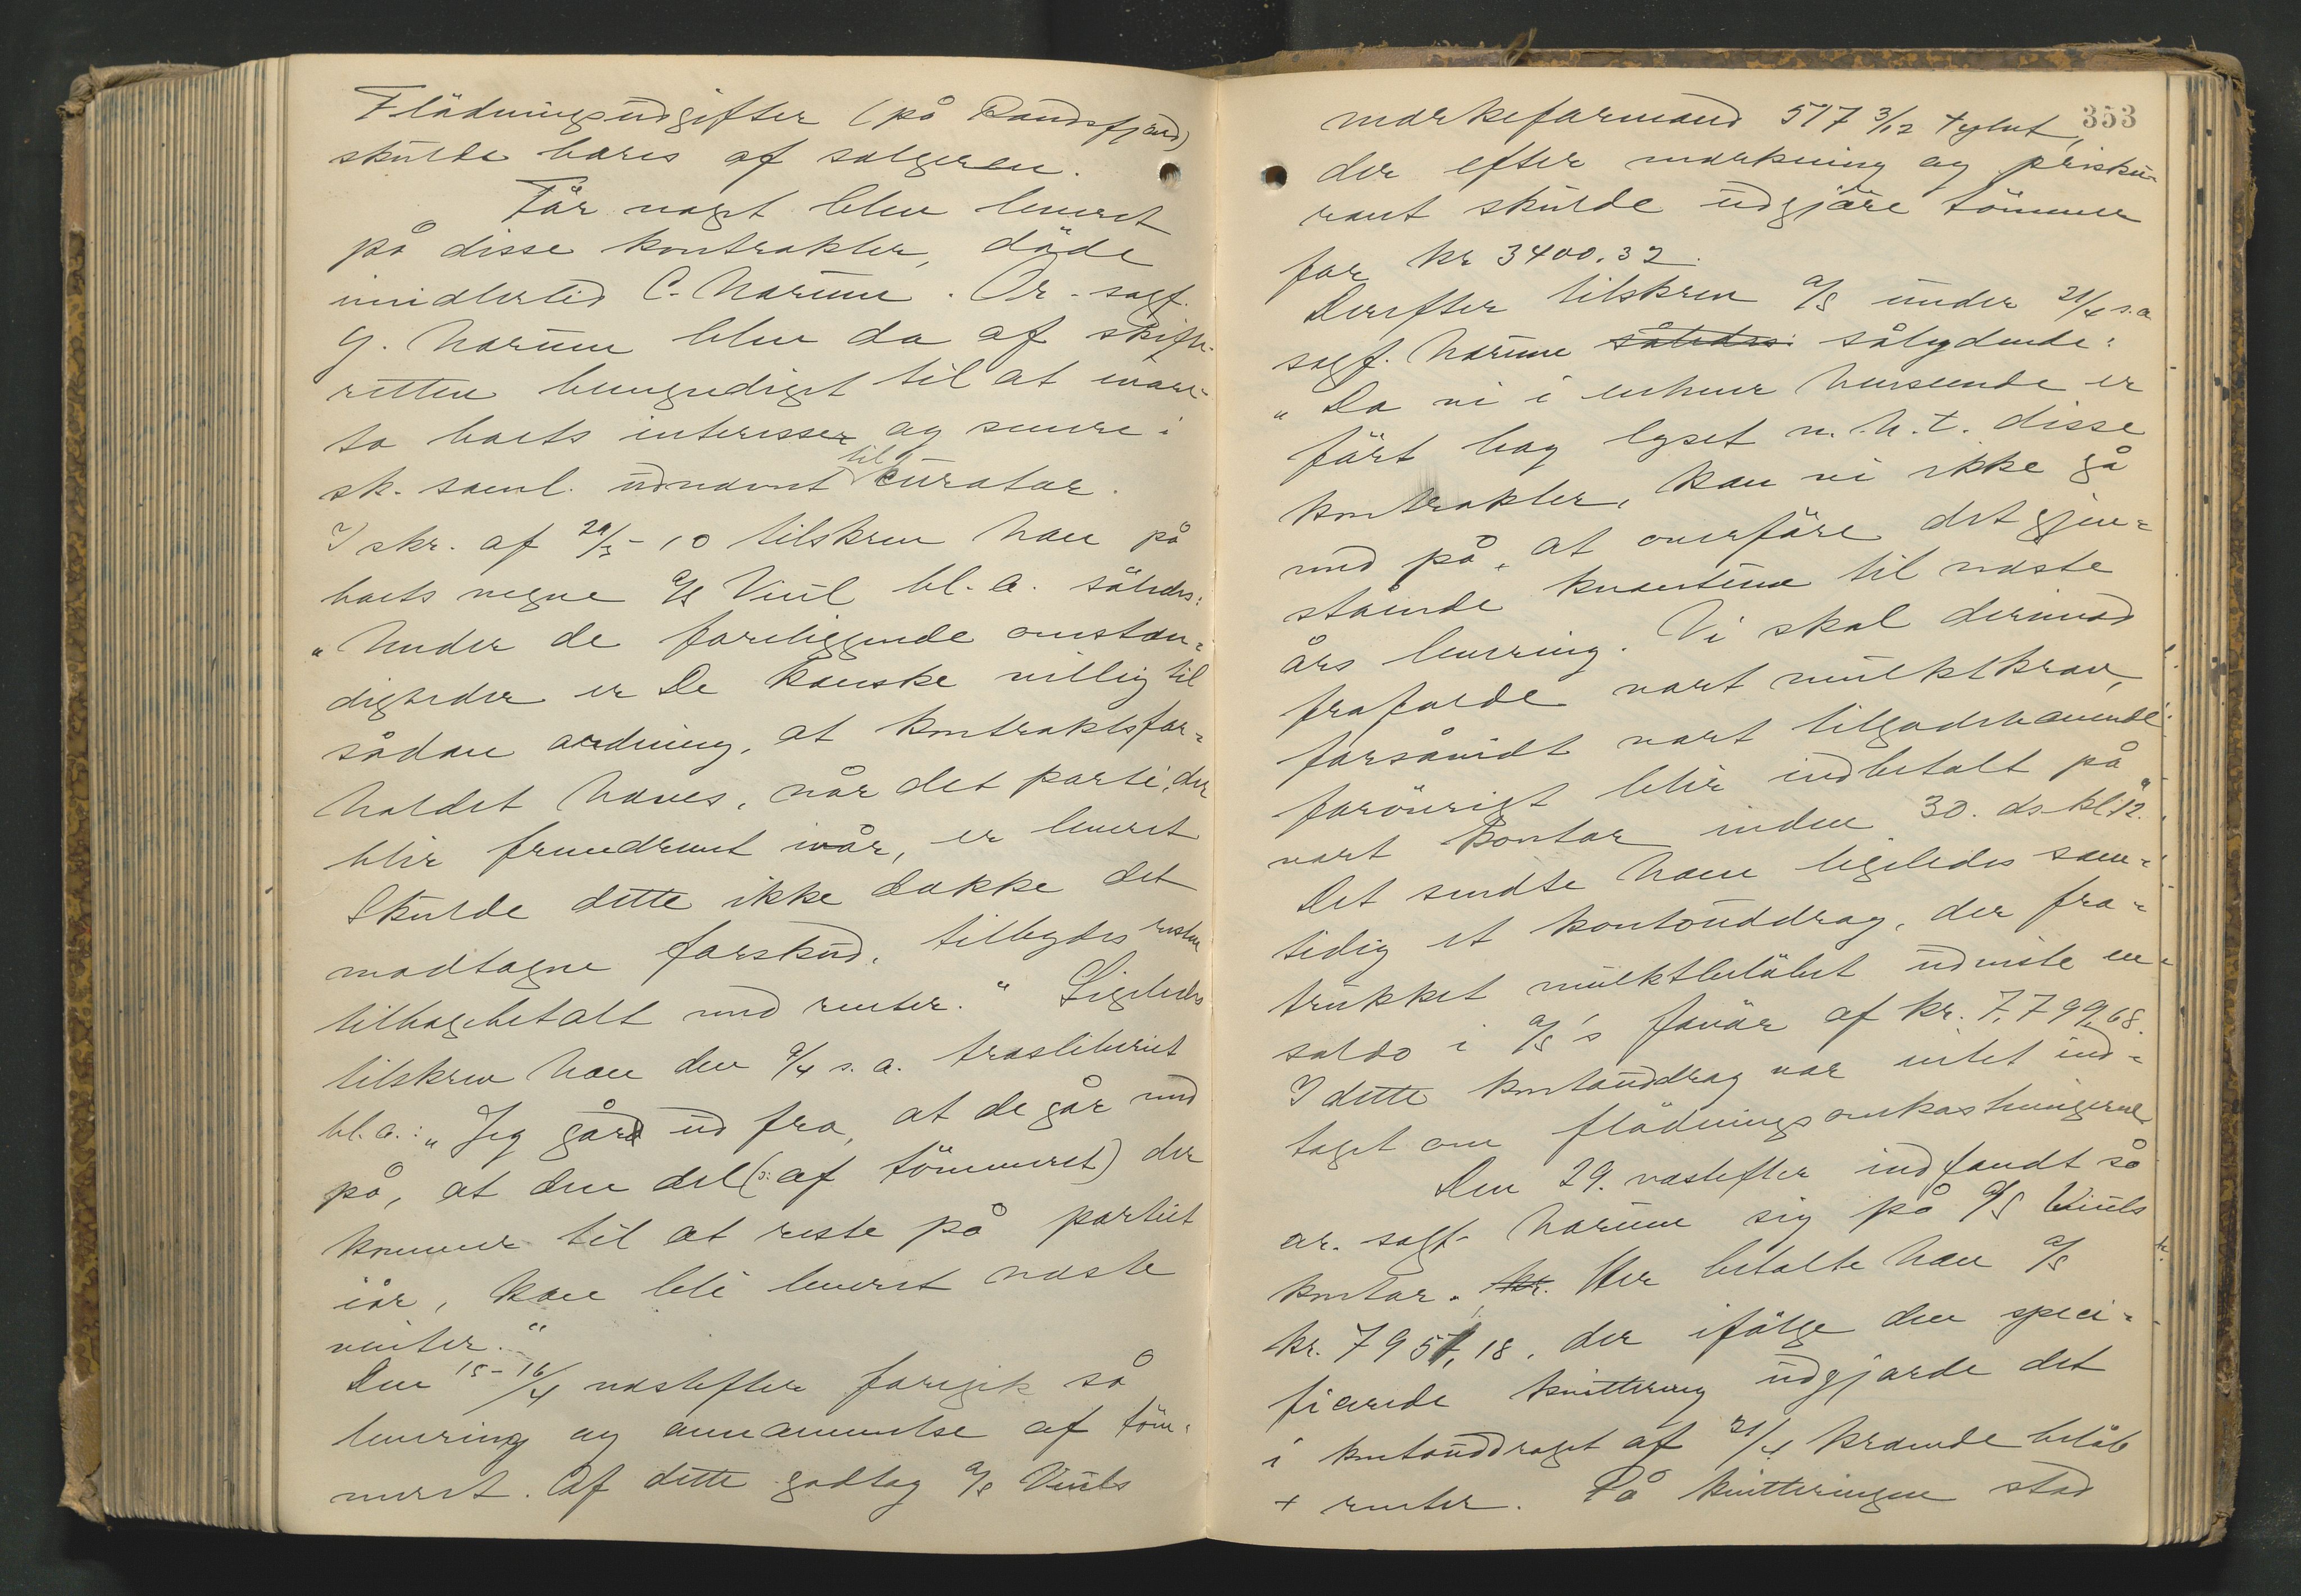 Flödningsudgifter (på Randsfjord)
skulde bæres af sælgeren.
Før noget blev leveret
på disse kontrakter, døde
imidlertid C. Narum. Or. sagf.
G. Narum blev da af skifte-
retten bemyndiget til at ivare-
ta boets interesser og senere i
sk. saml. udnævnt til kurator.
I skr. af 29/3-10 tilskrev han på
boets vegne A/S Viul bl. a. således:
"Under de foreliggende omstæn-
digheder er De kanske villig til
sådan ordning, at kontraktsfor-
holdet hæves, når det parti, der
blir fremdrevet iår, er leveret
Skulde dette ikke dække det
modtagne forskud, tilbydes resten
tilbagebetalt med renter." Ligeledes
tilskrev han den 9/4 s. a. træsliberiet
bl. a.: "Jeg går ud fra, at de går med
på, at den del (ɔ: af tømmeret) der
kommer til at reste på partiet
iår, kan bli leveret næste
vinter."
Den 15-16/4 næstefter foregik så
levering og annammelse af tøm-
meret. Af dette godtog A/S Viuls
353
mærkeformand 517 3/12 tylvt,
der efter mærkning og prisku-
rant skulde udgjøre tømmer
for kr 3400.32.
Derefter tilskrev A/S under 21/4 s. a
sagf. Narum således: sålydende:
"Da vi i enhver henseende er
ført bag lyset m. h. t. disse
kontrakter, kan vi ikke gå
med på, at overføre det gjen-
stående kvantum til næste
års levering. Vi skal derimod
frafalde vort mulktkrav,
forsåvidt vort tilgodehavende
forøvrigt blir indbetalt på
vort kontor inden 30. ds. kl. 12."
Det sendte ham ligeledes sam-
tidig et kontoudrag, der fra-
trukket mulktbeløbet udviste en
saldo i A/S's favør af kr. 7,799,68.
I dette kontouddrag var intet ind-
taget om flødningsomkostningerne
Den 29. næstefter indfandt så
or. sagf. Narum sig på A/S Viuls
kontor. kr. Her betalte han A/S
kr. 7957,18, der ifølge den speci-
ficerede kvittering udgjorde det
i kontouddraget af 21/4 krævede beløb
+ renter. På kvitteringen stod